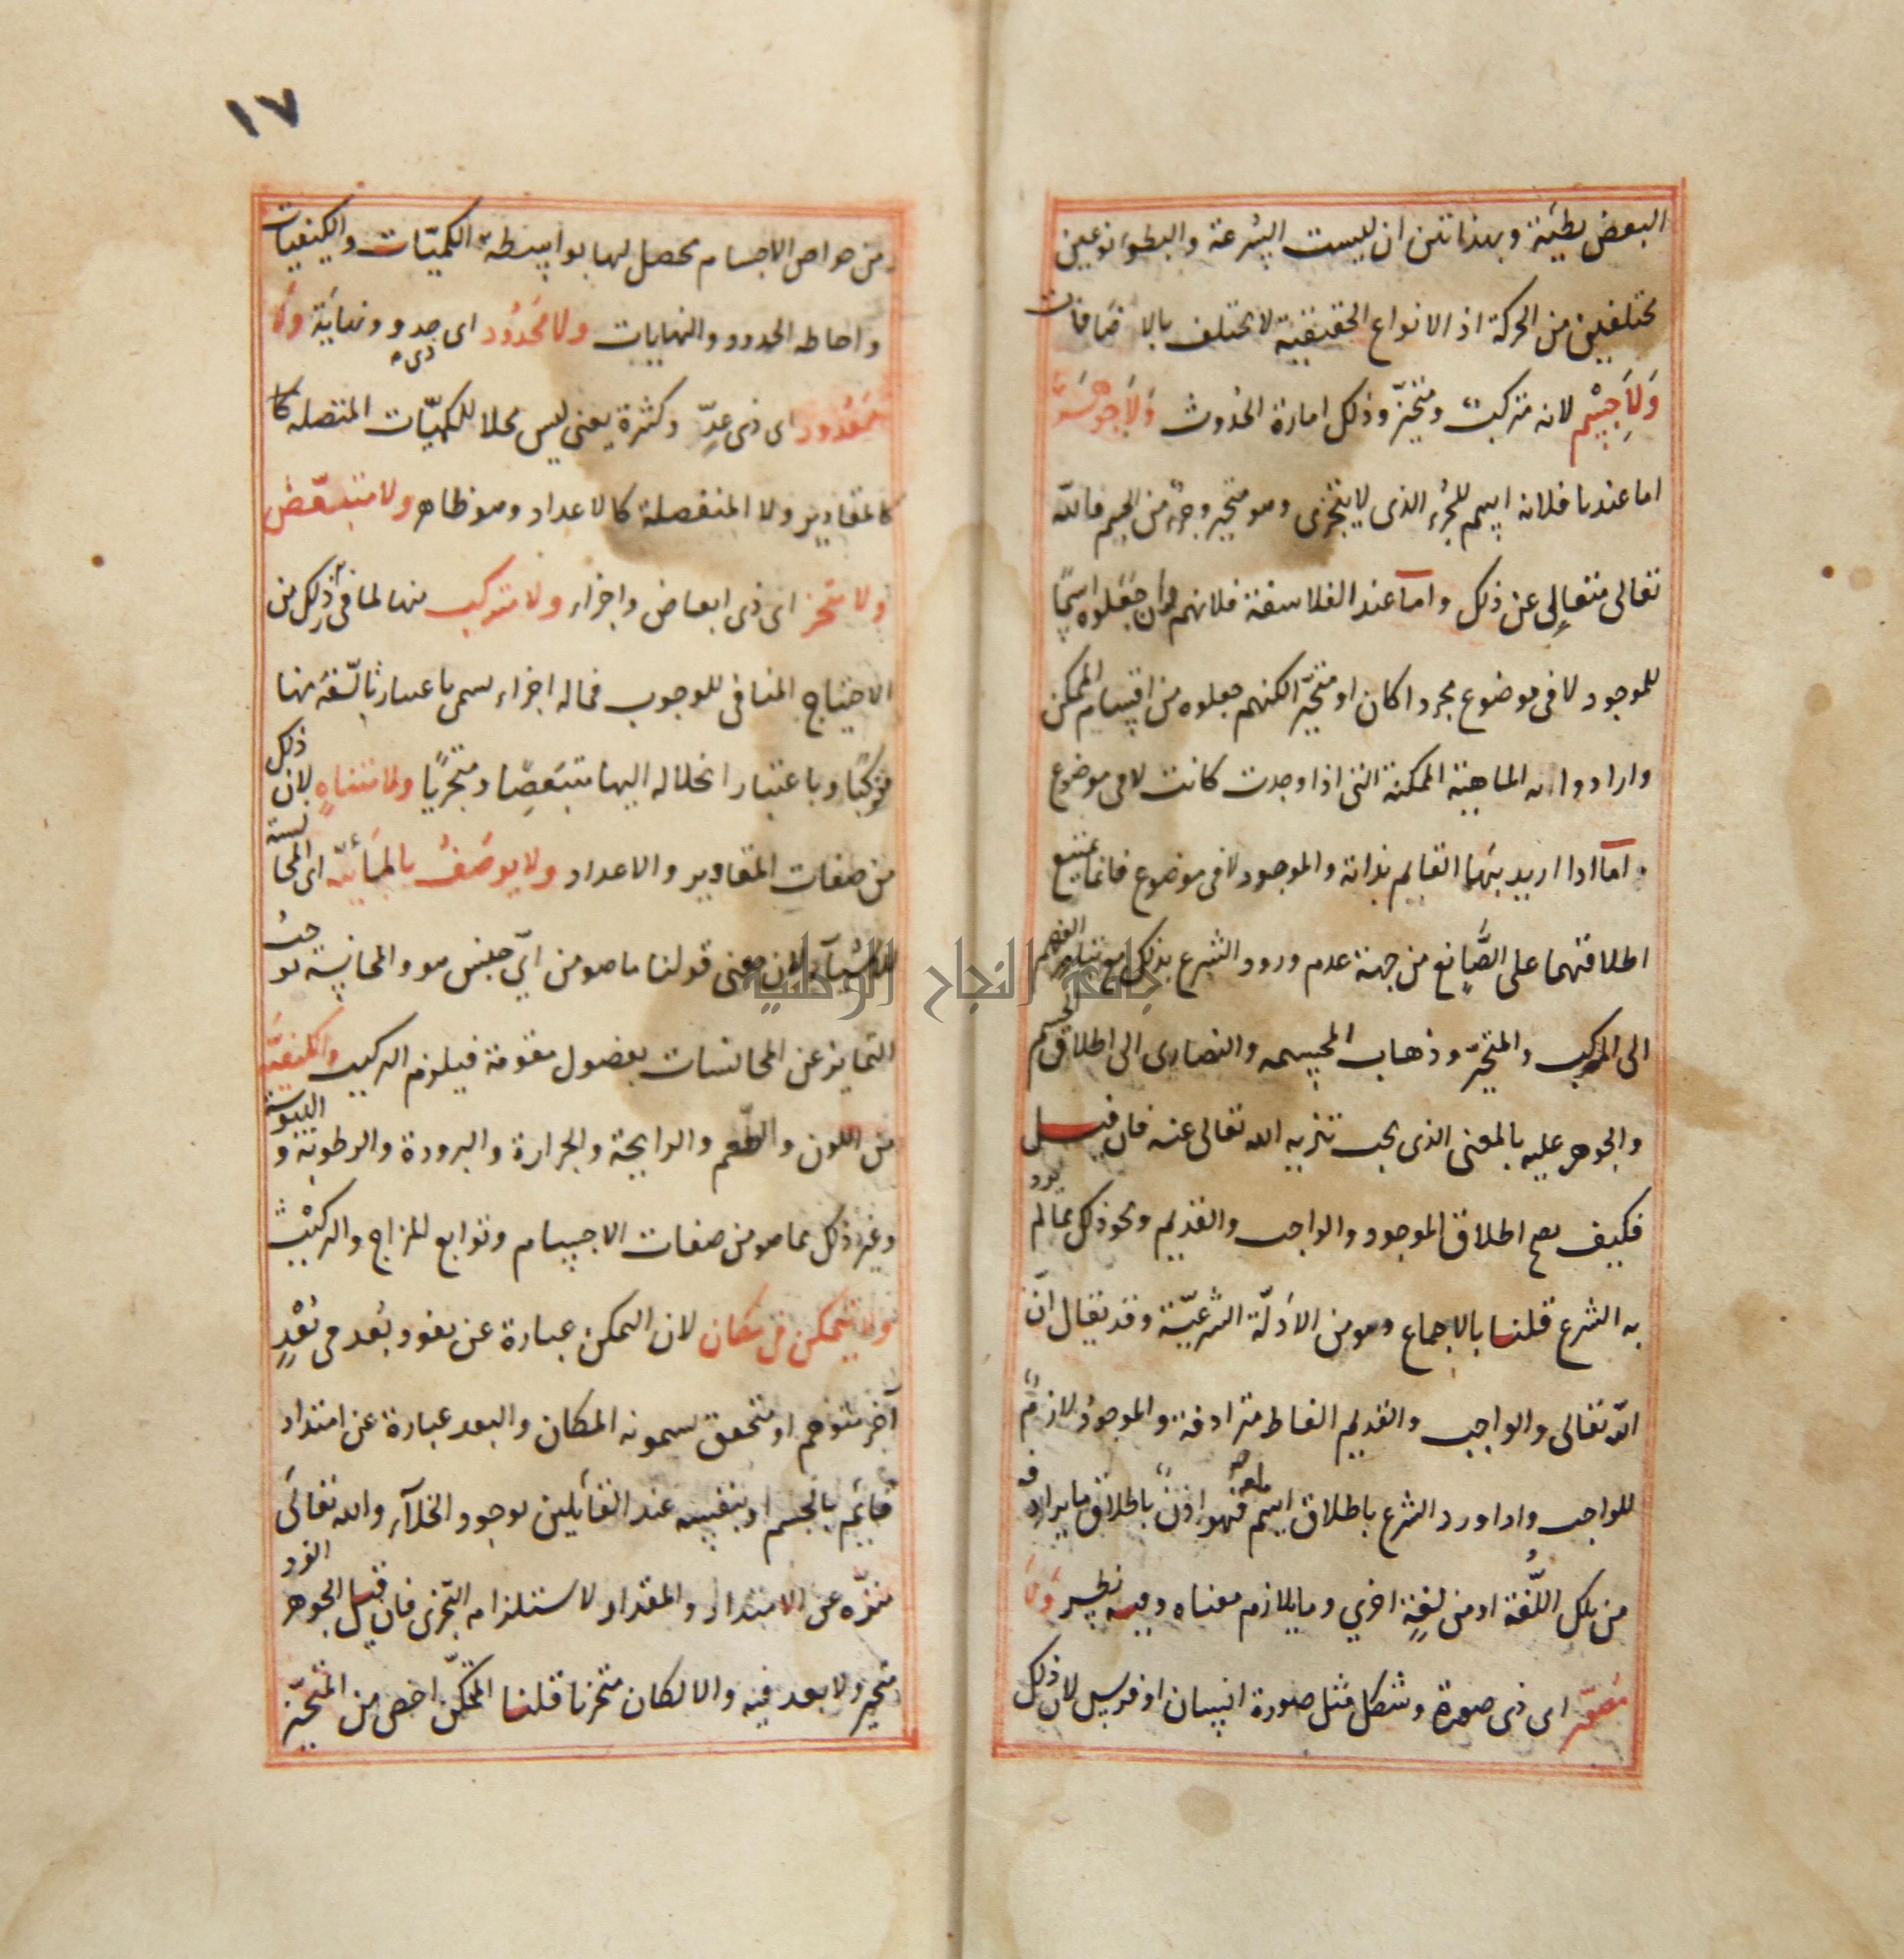 البعض بطيئة وبهذا تبين ان ليست السرعة والبطؤ نوعين
مختلفين من الحركة اذ الانواع الحقيقية لا تختلف بالاضافات
ولا جسم لانه متركب ومتحيز وذلك امارة الحدوث ولا جوهر
اما عندنا فلانه اسم للجزء الذى لا يتجزى وهو متحيز وجزء من الجسم فالله
تعالى متعالى عن ذلك واما عند الفلاسفة فلانهم وان جعلوه اسمًا
للموجود لا فى موضوع مجردا كان او متحيزا لكنهم جعلوه من اقسام الممكن
وارادوا به الماهية الممكنة التى اذا وجدت كانت لا فى موضوع
واما اذا اريد بهما القايم بذاته والموجود لا فى موضوع فانما يمتنع
اطلاقهما على الصانع من جهة عدم ورود الشرع بذلك مع تبادر الفهم
الى المركب والمتحيز وذهاب المجسمه والنصارى الى اطلاق الجسم
والجوهر عليه بالمعنى الذى يجب تنزيه الله تعالى عنه فان قيل
فكيف يصح اطلاق الموجود والواجب والقديم ونحو ذلك مما لم يرد
به الشرع قلنا بالاجماع وهو من الادلّة الشرعيّة وقد يقال انّ
الله تعالى والواجب والقديم الفاظ مترادفة والموجود لازم
للواجب واذا ورد الشرع باطلاق اسم بلغة فهو اذن باطلاق ما يرادفه
من تلك اللّغة او من لغةٍ اخرى وما يلازم معناه وفيه نظر ولا
مصوّر اى ذى صورة وشكل مثل صورة انسان او فرس لان ذلك
١٧
من خواص الاجسام يحصل لها بواسطة الكميّات والكيفيات
واحاطه الحدود والنهايات ولا محدُود اى ذى حد ونهاية ولا
معدُود اى ذى عدّ وكثرة يعنى ليس محلا للكميّات المتصله كا
كالمقادير ولا المنفصلة كالاعداد وهو ظاهر ولا متبعّض
ولا متجز اى ذى ابعاض واجزاء ولا متركب منها لما فى ذلك من
الاحتياج المنافى للوجوب فماله اجزاء يسمى باعتبار تالّفه منها
متركبًا وباعتبار انحلاله اليها متبعضًا ومتجزيًا ولا متناهٍ لان ذلك
من صفات المقادير والاعداد ولا يوصَفُ بالمَائيّة اى المجانسة
للاشياء لان معنى قولنا ما هو من ايّ جنس هو والمجانسة توجبُ
التمايز عن المجانسات بفصول مقومة فيلزم التركيب ولا بالكيفيّة
من اللون والطّعم والرايحة والحرارة والبرودة والرطوبة واليبوسة
وغير ذلك مما هو من صفات الاجسام وتوابع المزاج والتركيب
ولا يتمكن فى مكان لان التمكن عبارة عن نفوذ بُعد فى بُعْدٍ
آخر متوهم او متحقق يسمونه المكان والبعد عبارة عن امتداد
قايم بالجسم او بنفسه عند القائلين بوجود الخلآء والله تعالى
منزّه عن الامتداد والمقدار لاستلزامه التّجزى فان قيل الجوهر الفرد
متحيز ولا بعد فيه والا لكان متجزيا قلنا المتمكن اخص من المتحيّز
جامعة النجاح الوطنية